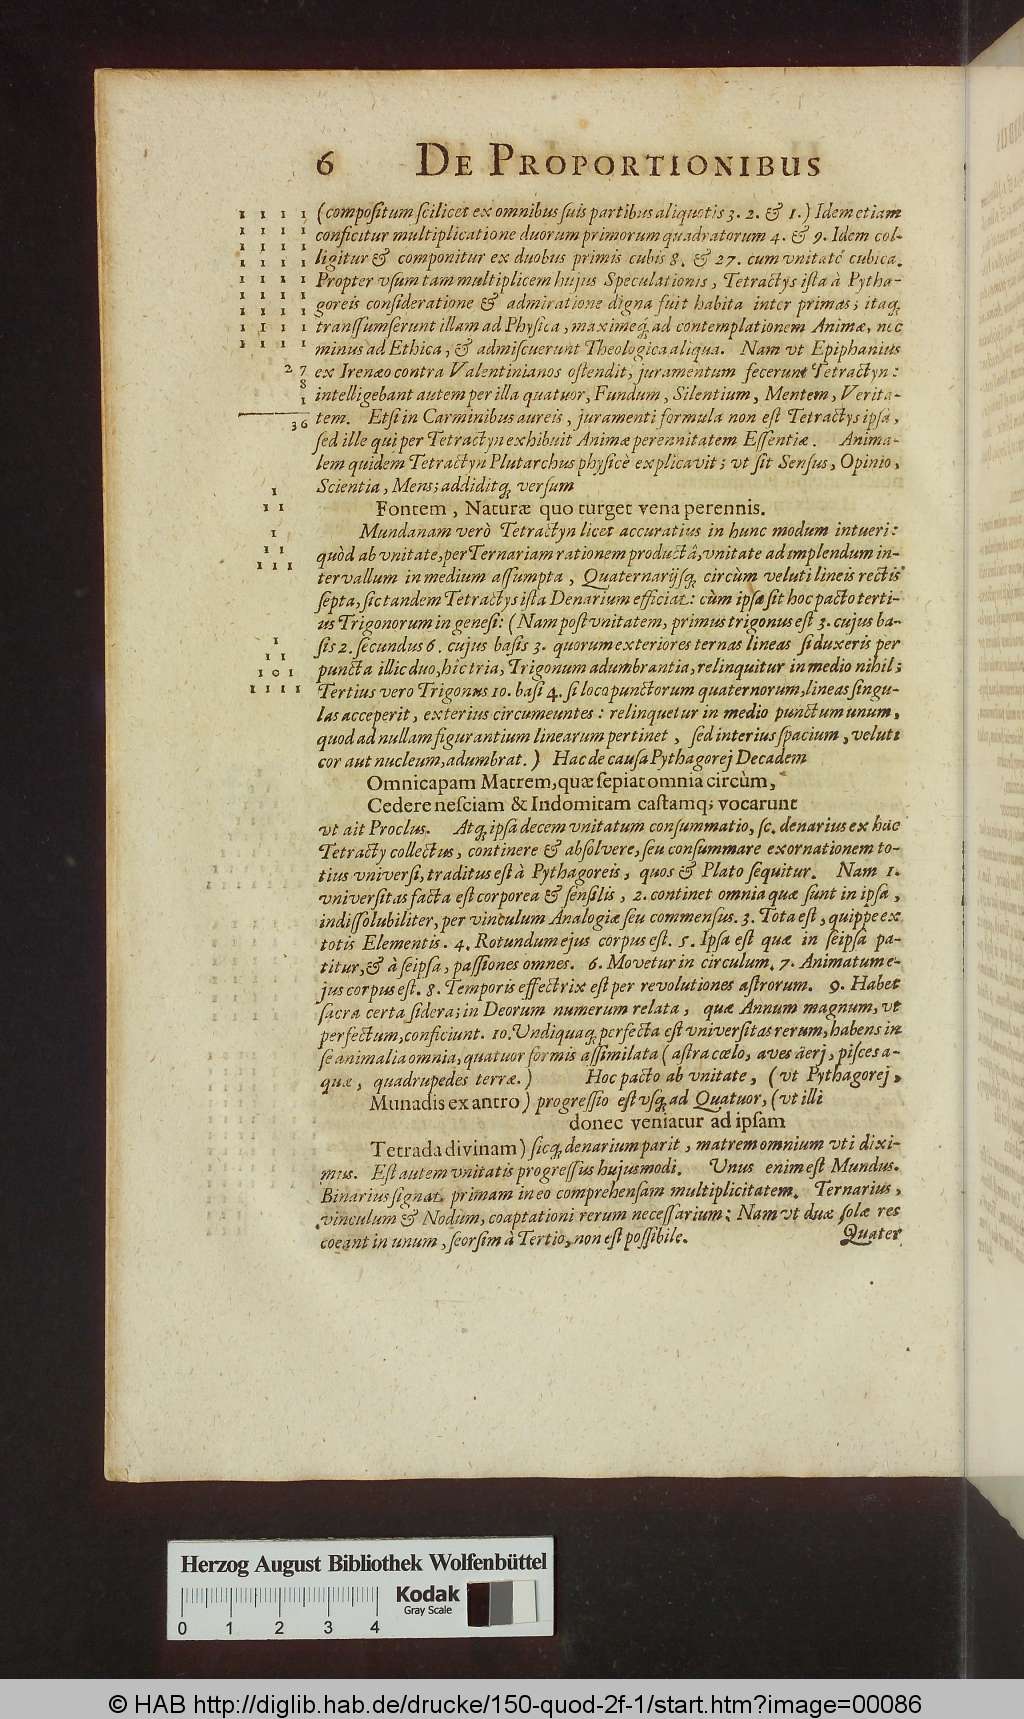 6 DE PROPORTIONIBUS
(compositum scilicet ex omnibus suis partibus aliquotis 3. 2. & 1.) Idem etiam
conficitur multiplicatione duorum primorum quadratorum 4. & 9. Idem col-
ligitur & componitur ex duobus primis cubis 8. & 27. cum vnitate cubica.
Propter vsum tam multiplicem hujus Speculationis, Tetractys ista à Pytha-
goreis consideratione & admiratione digna fuit habita inter primas; itaq;
transsumserunt illam ad Physica, maximeq; ad contemplationem Animæ, nec
minus ad Ethica, & admiscuerunt Theologica aliqua. Nam vt Epiphanius
ex Irenæo contra Valentinianos ostendit, juramentum fecerunt Tetractyn:
intelligebant autem per illa quatuor, Fundum, Silentium, Mentem, Verita-
tem. Etsi in Carminibus aureis, juramenti formula non est Tetractys ipsa,
sed ille qui per Tetractyn exhibuit Animæ perennitatem Essentiæ. Anima-
lem quidem Tetractyn Plutarchus physicè explicavit; vt sit Sensus, Opinio,
Scientia, Mens; addiditq; versum
Fontem, Naturæ quo turget vena perennis.
Mundanam verò Tetractyn licet accuratius in hunc modum intueri:
quòd ab vnitate, per Ternariam rationem productâ, vnitate ad implendum in-
tervallum in medium assumpta, Quaternarijsq; circùm veluti lineis rectis
septa, sic tandem Tetractys ista Denarium efficiat: cùm ipsa sit hoc pacto terti-
us Trigonorum in genesi: (Nam post vnitatem, primus trigonus est 3. cujus ba-
sis 2. secundus 6. cujus basis 3. quorum exteriores ternas lineas si duxeris per
puncta illic duo, hîc tria, Trigonum adumbrantia, relinquitur in medio nihil;
Tertius vero Trigonus 10. basi 4. si loco punctorum quaternorum, lineas singu-
las acceperit, exterius circumeuntes: relinquetur in medio punctum unum,
quod ad nullam figurantium linearum pertinet, sed interius spacium, veluti
cor aut nucleum, adumbrat.) Hac de causa Pythagorej Decadem
Omnicapam Matrem, quæ sepiat omnia circùm,
Cedere nesciam & Indomitam castamq; vocarunt
vt ait Proclus. Atq; ipsa decem vnitatum consummatio, sc. denarius ex hac
Tetracty collectus, continere & absolvere, seu consummare exornationem to-
tius universi, traditus est à Pythagoreis, quos & Plato sequitur. Nam 1.
vniversitas facta est corporea & sensilis, 2. continet omnia quæ sunt in ipsa,
indissolubiliter, per vinculum Analogiæ seu commensus. 3. Tota est, quippe ex
totis Elementis. 4. Rotundum ejus corpus est. 5. Ipsa est quæ in seipsa pa-
titur, & à seipsa, passiones omnes. 6. Movetur in circulum. 7. Animatum e-
jus corpus est. 8. Temporis effectrix est per revolutiones astrorum. 9. Habet
sacra certa sidera; in Deorum numerum relata, quæ Annum magnum, vt
perfectum, conficiunt. 10. Undiquaq; perfecta est vniversitas rerum, habens in
se animalia omnia, quatuor formis assimilata (astra cœlo, aves äerj, pisces a-
quæ, quadrupedes terræ.) Hoc pacto ab vnitate, (vt Pythagorej,
Munadis ex antro) progressio est vsq; ad Quatuor, (vt illi
donec veniatur ad ipsam
Tetrada divinam) sicq; denarium parit, matrem omnium vti dixi-
mus. Est autem vnitatis progressus hujusmodi. Unus enim est Mundus.
Binarius signat primam in eo comprehensam multiplicitatem. Ternarius,
vinculum & Nodum, coaptationi rerum necessarium: Nam vt duæ solæ res
coeant in unum, seorsim à Tertio, non est possibile.
Quater
1 1 1 1
1 1 1 1
1 1 1 1
1 1 1 1
1 1 1 1
1 1 1 1
1 1 1 1
1 1 1 1
27
8
1
36
1
1 1
1
1 1
1 1 1
1
1 1
1 0 1
1 1 1 1
Herzog August Bibliothek Wolfenbüttel
Kodak
Gray Scale
0 1 2 3 4
© HAB http://diglib.hab.de/drucke/150-quod-2f-1/start.htm?image=00086